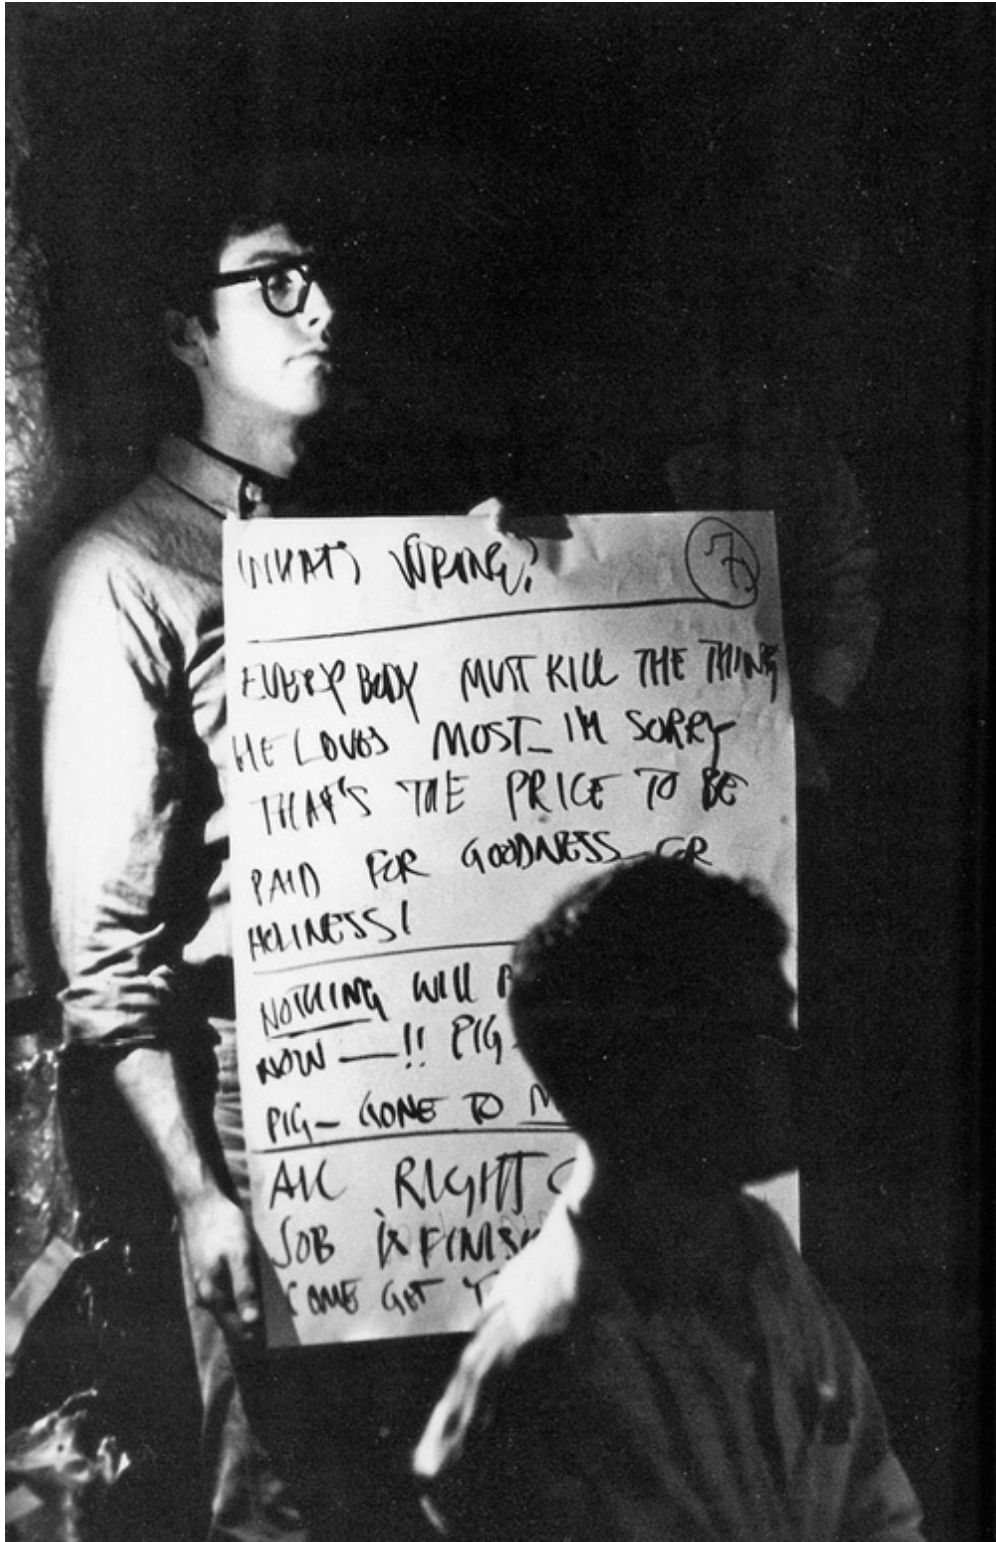 WHAT'S WRONG? 7
EVERYBODY MUST KILL THE THING
HE LOVES MOST_ I'M SORRY
THAT'S THE PRICE TO BE
PAID FOR GOODNESS OR
HOLINESS!
NOTHING WILL
NOW —!! PIG
PIG_ GONE TO
ALL RIGHT
JOB IS
COME GET